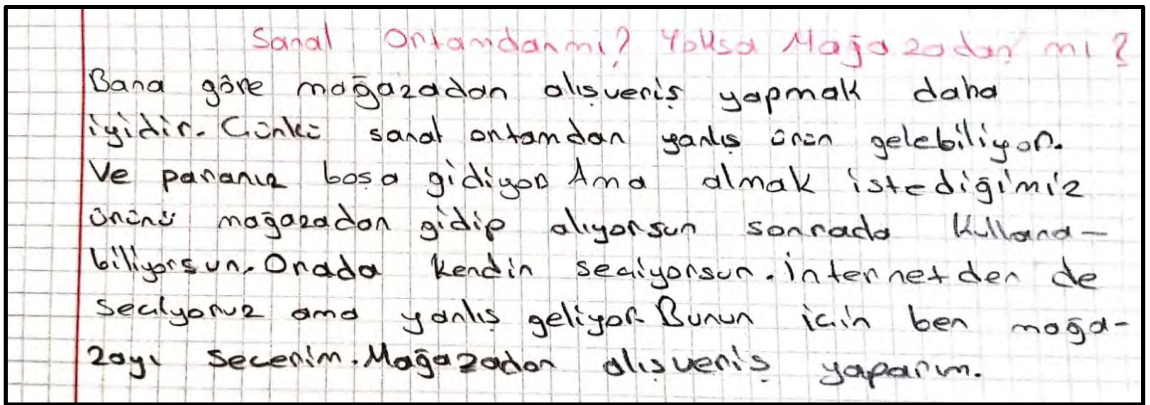 Sanal Ortamdan mı? Yoksa Mağazadan mı?
Bana göre mağazadan alışveriş yapmak daha
iyidir. Çünkü sanal ortamdan yanlış ürün gelebiliyor.
Ve paranız boşa gidiyor Ama almak istediğimiz
ürünü mağazadan gidip alıyorsun sonrada kullana-
biliyorsun. Orada kendin seçiyorsun. internetden de
seçiyoruz ama yanlış geliyor. Bunun için ben mağa-
zayı seçerim. Mağazadan alışveriş yaparım.